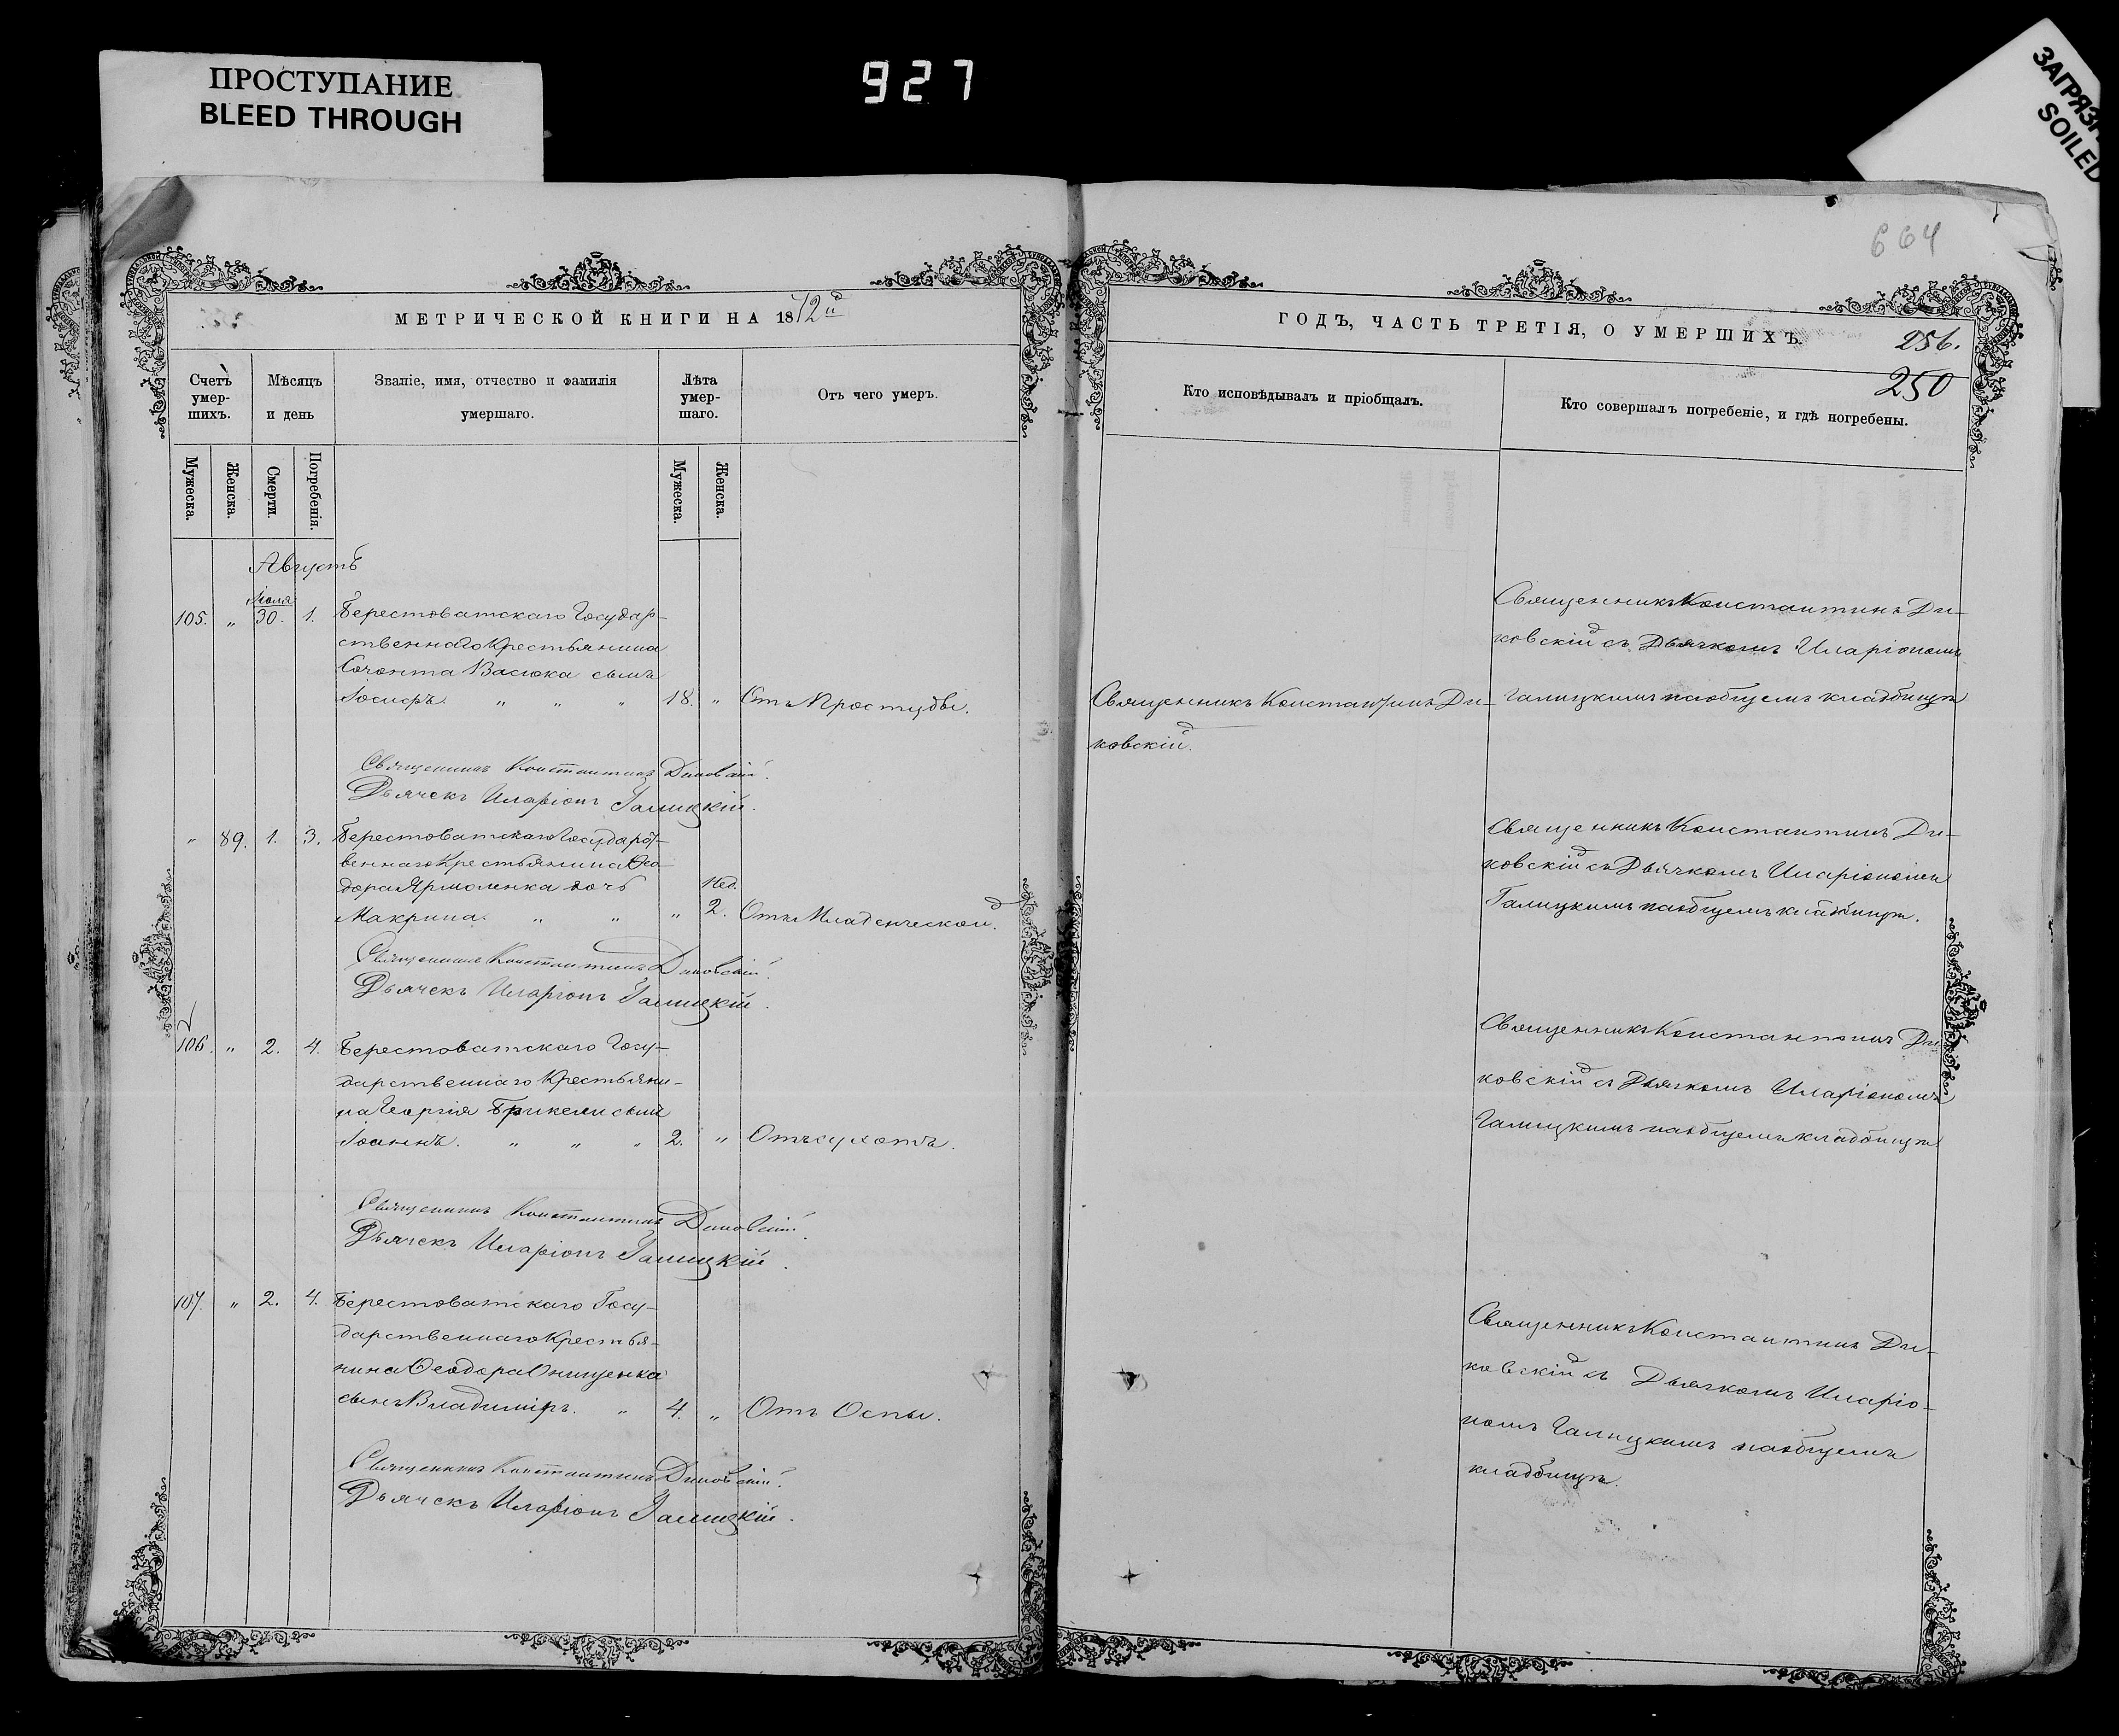 ПРОСТУПАНИЕ
BLEED THROUGH
927
SOILED
664
МЕТРИЧЕСКОЙ КНИГИ НА 1872й
Счетъ умер-шихъ.
Мѣсяцъ и день
Званіе, имя, отчество и фамилія умершаго.
Лѣта умер-шаго.
Отъ чего умеръ.
Мужеска.
Женска.
Смерти.
Погребенія.
Мужеска.
Женска.
Августъ
Іюля
105. „ 30. 1. Берестоватскаго Государ-
ственнаго Крестьянина
Васюка сынъ
Іосифъ. „ „ „ 18. „ Отъ Простуды.
Священникъ Константинъ Диковскій.
Дьячекъ Иларіонъ Галицкій.
„ 89. 1. 3. Берестоватскаго Государст-
веннаго Крестьянина Ѳео-
дора Ярмоленка дочь
Нед.
Макрина. „ „ „ 2. Отъ Младенческой.
Священникъ Константинъ Диковскій.
Дьячекъ Иларіонъ Галицкій.
106. „ 2. 4. Берестоватскаго Госу-
дарственнаго Крестьяни-
на Георгія сынъ
Іоаннъ. „ „ „ 2. „ Отъ сухотъ.
Священникъ Константинъ Диковскій.
Дьячекъ Иларіонъ Галицкій.
107. „ 2. 4. Берестоватскаго Госу-
дарственнаго Крестья-
нина Ѳеодора Онищенка
сынъ Владиміръ. „ 4. „ Отъ Оспы.
Священникъ Константинъ Диковскій.
Дьячекъ Иларіонъ Галицкій.
ГОДЪ, ЧАСТЬ ТРЕТІЯ, О УМЕРШИХЪ.
256.
250
Кто исповѣдывалъ и пріобщалъ.
Кто совершалъ погребеніе, и гдѣ погребены.
Священникъ Константинъ Ди-
ковскій.
Священникъ Константинъ Ди-
ковскій съ Дьячкомъ Иларіономъ
Галицкимъ на общемъ кладбищѣ
Священникъ Константинъ Ди-
ковскій съ Дьячкомъ Иларіономъ
Галицкимъ на общемъ кладбищѣ.
Священникъ Константинъ Ди-
ковскій съ Дьячкомъ Иларіономъ
Галицкимъ на общемъ кладбищѣ
Священникъ Константинъ Ди-
ковскій съ Дьячкомъ Иларіо-
номъ Галицкимъ на общемъ
кладбищѣ.